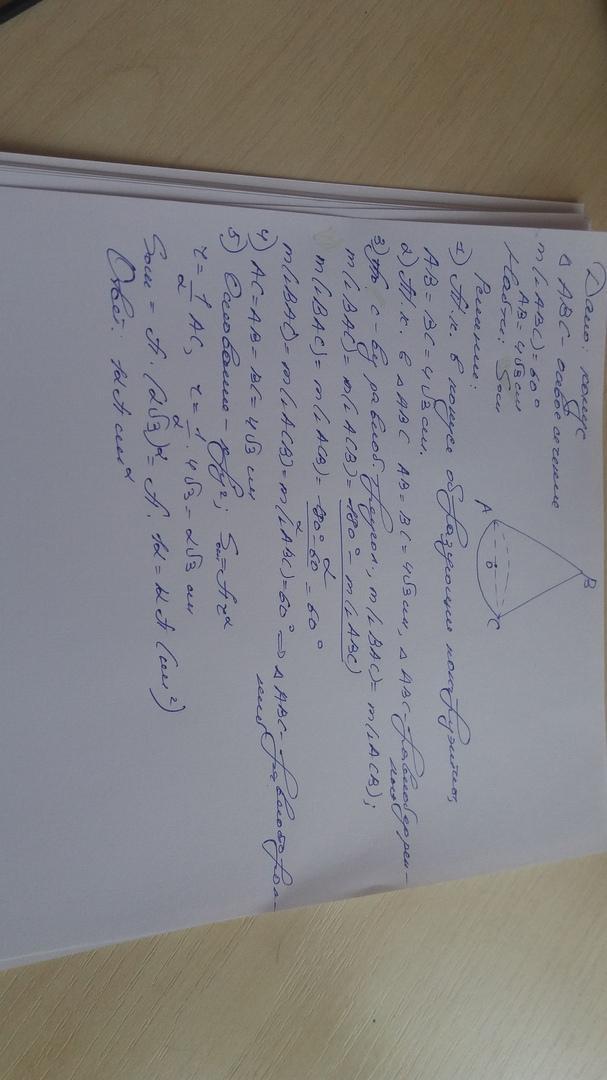 Дано: конус
△ ABC - осевое сечение
m(∠ABC)=60°
AB = 4√3 см
Найти: Sосн
B
A
C
Решение:
1) Т.к. в конусе образующие конгруэнтны,
AB = BC = 4√3 см.
2) Т.к. в △ABC AB = BC = 4√3 см, △ABC - равнобедрен-
ный
3) По с-ву равноб. треугол., m(∠BAC) = m(∠ACB);
m(∠BAC) = m(∠ACB) = 180° - m(∠ABC) / 2
m(∠BAC) = m(∠ACB) = 180-60 / 2 = 60°
m(∠BAC) = m(∠ACB) = m(∠ABC) = 60° ⇒ △ABC - равносторон-
ний
4) AC = AB = BC = 4√3 см
5) Основание - круг; Sосн = πr²
r = 1/2 AC, r = 1/2 · 4√3 = 2√3 см
Sосн = π · (2√3)² = π · 12 = 12π (см²)
Ответ: 12π см²